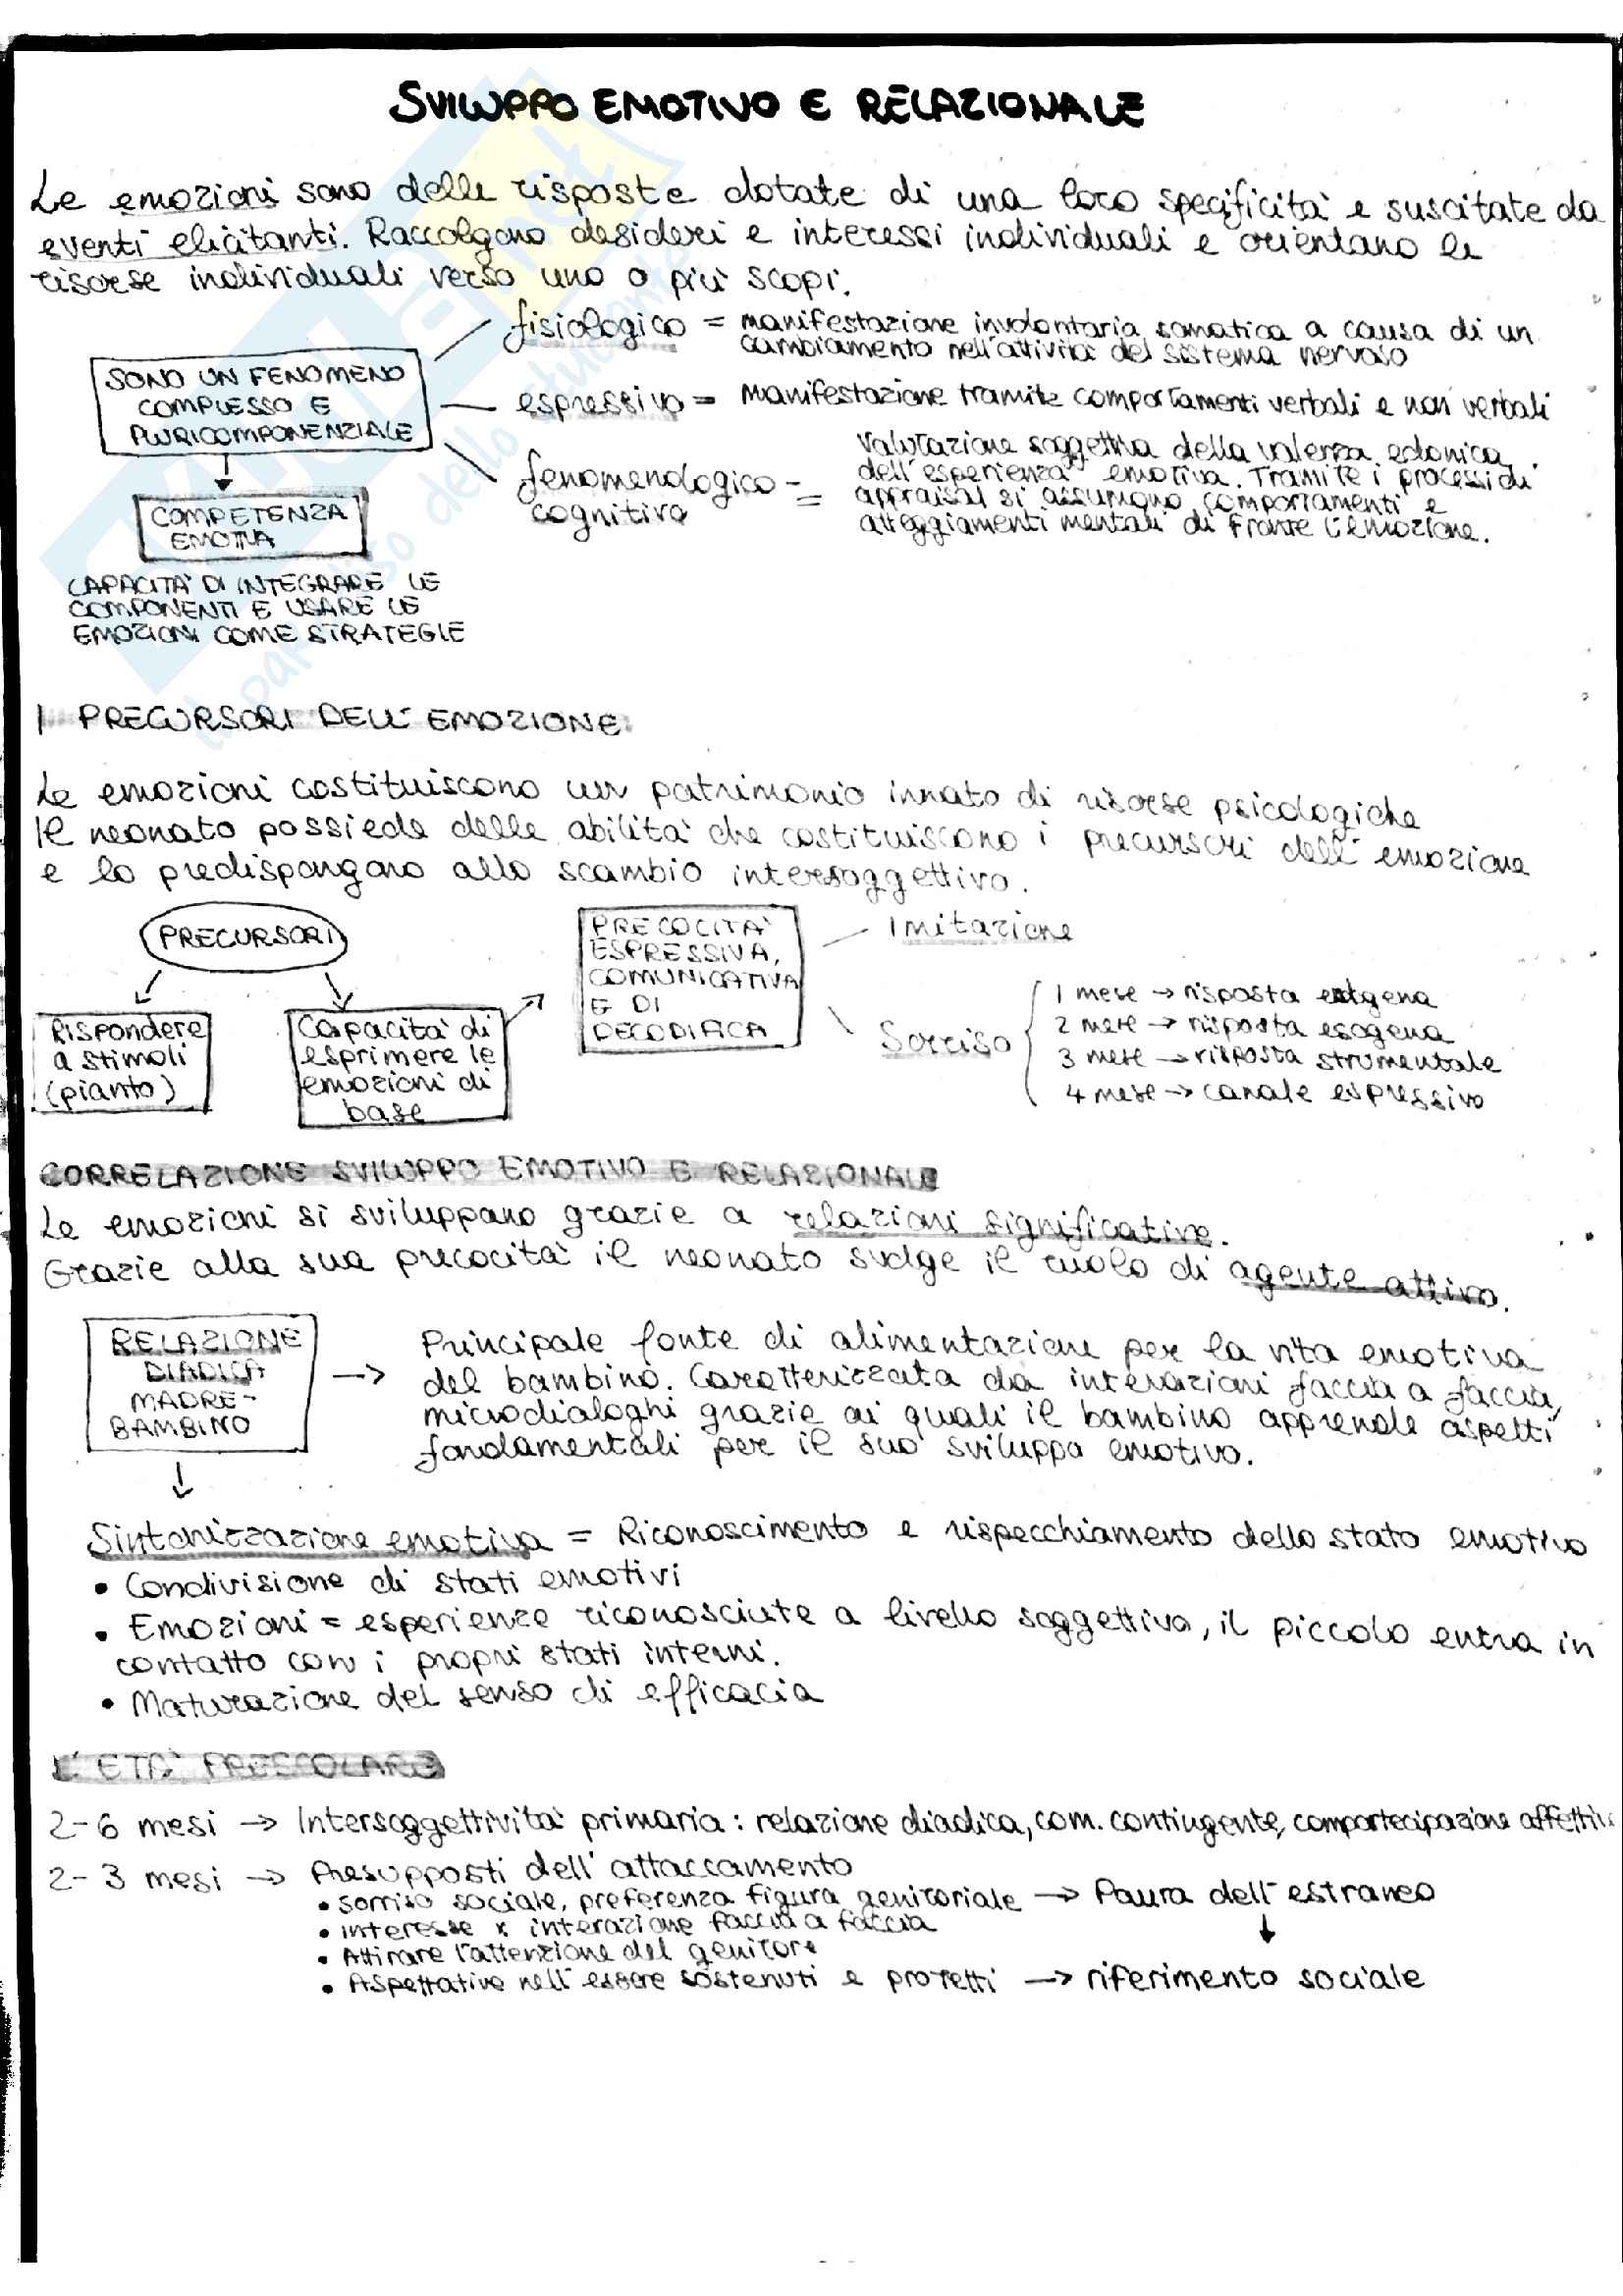 SVILUPPO EMOTIVO E RELAZIONALE
Le emozioni sono delle risposte dotate di una loro specificità e suscitate da
eventi elicitanti. Raccolgono desideri e interessi individuali e orientano le
risorse individuali verso uno o più scopi.
SONO UN FENOMENO
COMPLESSO E
PLURICOMPONENZIALE
fisiologico = manifestazione involontaria somatica a causa di un
cambiamento nell'attività del sistema nervoso
espressivo = manifestazione tramite comportamenti verbali e non verbali
fenomenologico -
cognitivo
= valutazione soggettiva della valenza edonica
dell'esperienza emotiva. Tramite i processi di
appraisal si assumono comportamenti e
atteggiamenti mentali di fronte l'emozione.
COMPETENZA
EMOTIVA
CAPACITÀ DI INTEGRARE LE
COMPONENTI E USARE LE
EMOZIONI COME STRATEGIE
I PRECURSORI DELL'EMOZIONE
Le emozioni costituiscono un patrimonio innato di risorse psicologiche
Il neonato possiede delle abilità che costituiscono i precursori dell'emozione
e lo predispongono allo scambio intersoggettivo.
PRECURSORI
Rispondere
a stimoli
(pianto)
Capacità di
esprimere le
emozioni di
base
PRECOCITÀ
ESPRESSIVA,
COMUNICATIVA
E DI
DECODIFICA
Imitazione
Sorriso
1 mese → risposta endogena
2 mese → risposta esogena
3 mese → risposta strumentale
4 mese → canale espressivo
CORRELAZIONE SVILUPPO EMOTIVO E RELAZIONALE
Le emozioni si sviluppano grazie a relazioni significative.
Grazie alla sua precocità il neonato svolge il ruolo di agente attivo.
RELAZIONE
DIADICA
MADRE-
BAMBINO
→ Principale fonte di alimentazione per la vita emotiva
del bambino. Caratterizzata da interazioni faccia a faccia,
microdialoghi grazie ai quali il bambino apprende aspetti
fondamentali per il suo sviluppo emotivo.
Sintonizzazione emotiva = Riconoscimento e rispecchiamento dello stato emotivo
• Condivisione di stati emotivi
• Emozioni = esperienze riconosciute a livello soggettivo, il piccolo entra in
contatto con i propri stati interni.
• Maturazione del senso di efficacia
L'ETÀ PRESCOLARE
2-6 mesi → Intersoggettività primaria: relazione diadica, com. contingente, compartecipazione affettiv
2-3 mesi → Presupposti dell'attaccamento
• sorriso sociale, preferenza figura genitoriale → Paura dell'estraneo
• interesse x interazione faccia a faccia
• Attirare l'attenzione del genitore
• Aspettative nell'essere sostenuti e protetti → riferimento sociale